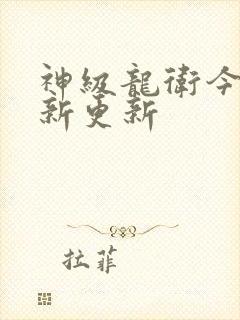 神級龍衛今
新更新
拉菲